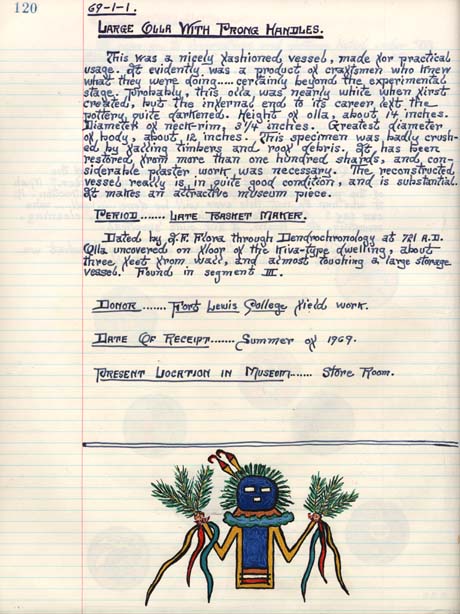 120
69-1-1.
Large Olla With Prong Handles.
This was a nicely fashioned, vessel, made for practical
usage. It evidently was a product of craftsmen who knew
what they were doing.....certainly beyond the experimental
stage. Probably, this olla was nearly white when first
created, but the infernal end to its career left the
pottery quite darkened. Height of olla, about 14 inches.
Diameter of neck-rim, 3 1/4 inches. Greatest diameter
of body, about, 12 inches. This specimen was badly crush-
ed by falling timbers and roof debris. It has been
restored from more than one hundred shards, and, con-
siderable plaster work was necessary. The reconstructed
vessel really is in quite good condition, and is substantial.
It makes an attractive museum piece.
Period....... Late Basket Maker.
Dated by I.F. Flora through Dendrochronology at 721 A.D.
Olla uncovered on floor of the Kiva-type dwelling, about
three feet from wall, and almost touching a large storage
vessel. Found in segment III.
Donor ....... Fort Lewis College field work.
Date Of Receipt....... Summer of 1969.
Present Location in Museum...... Store Room.